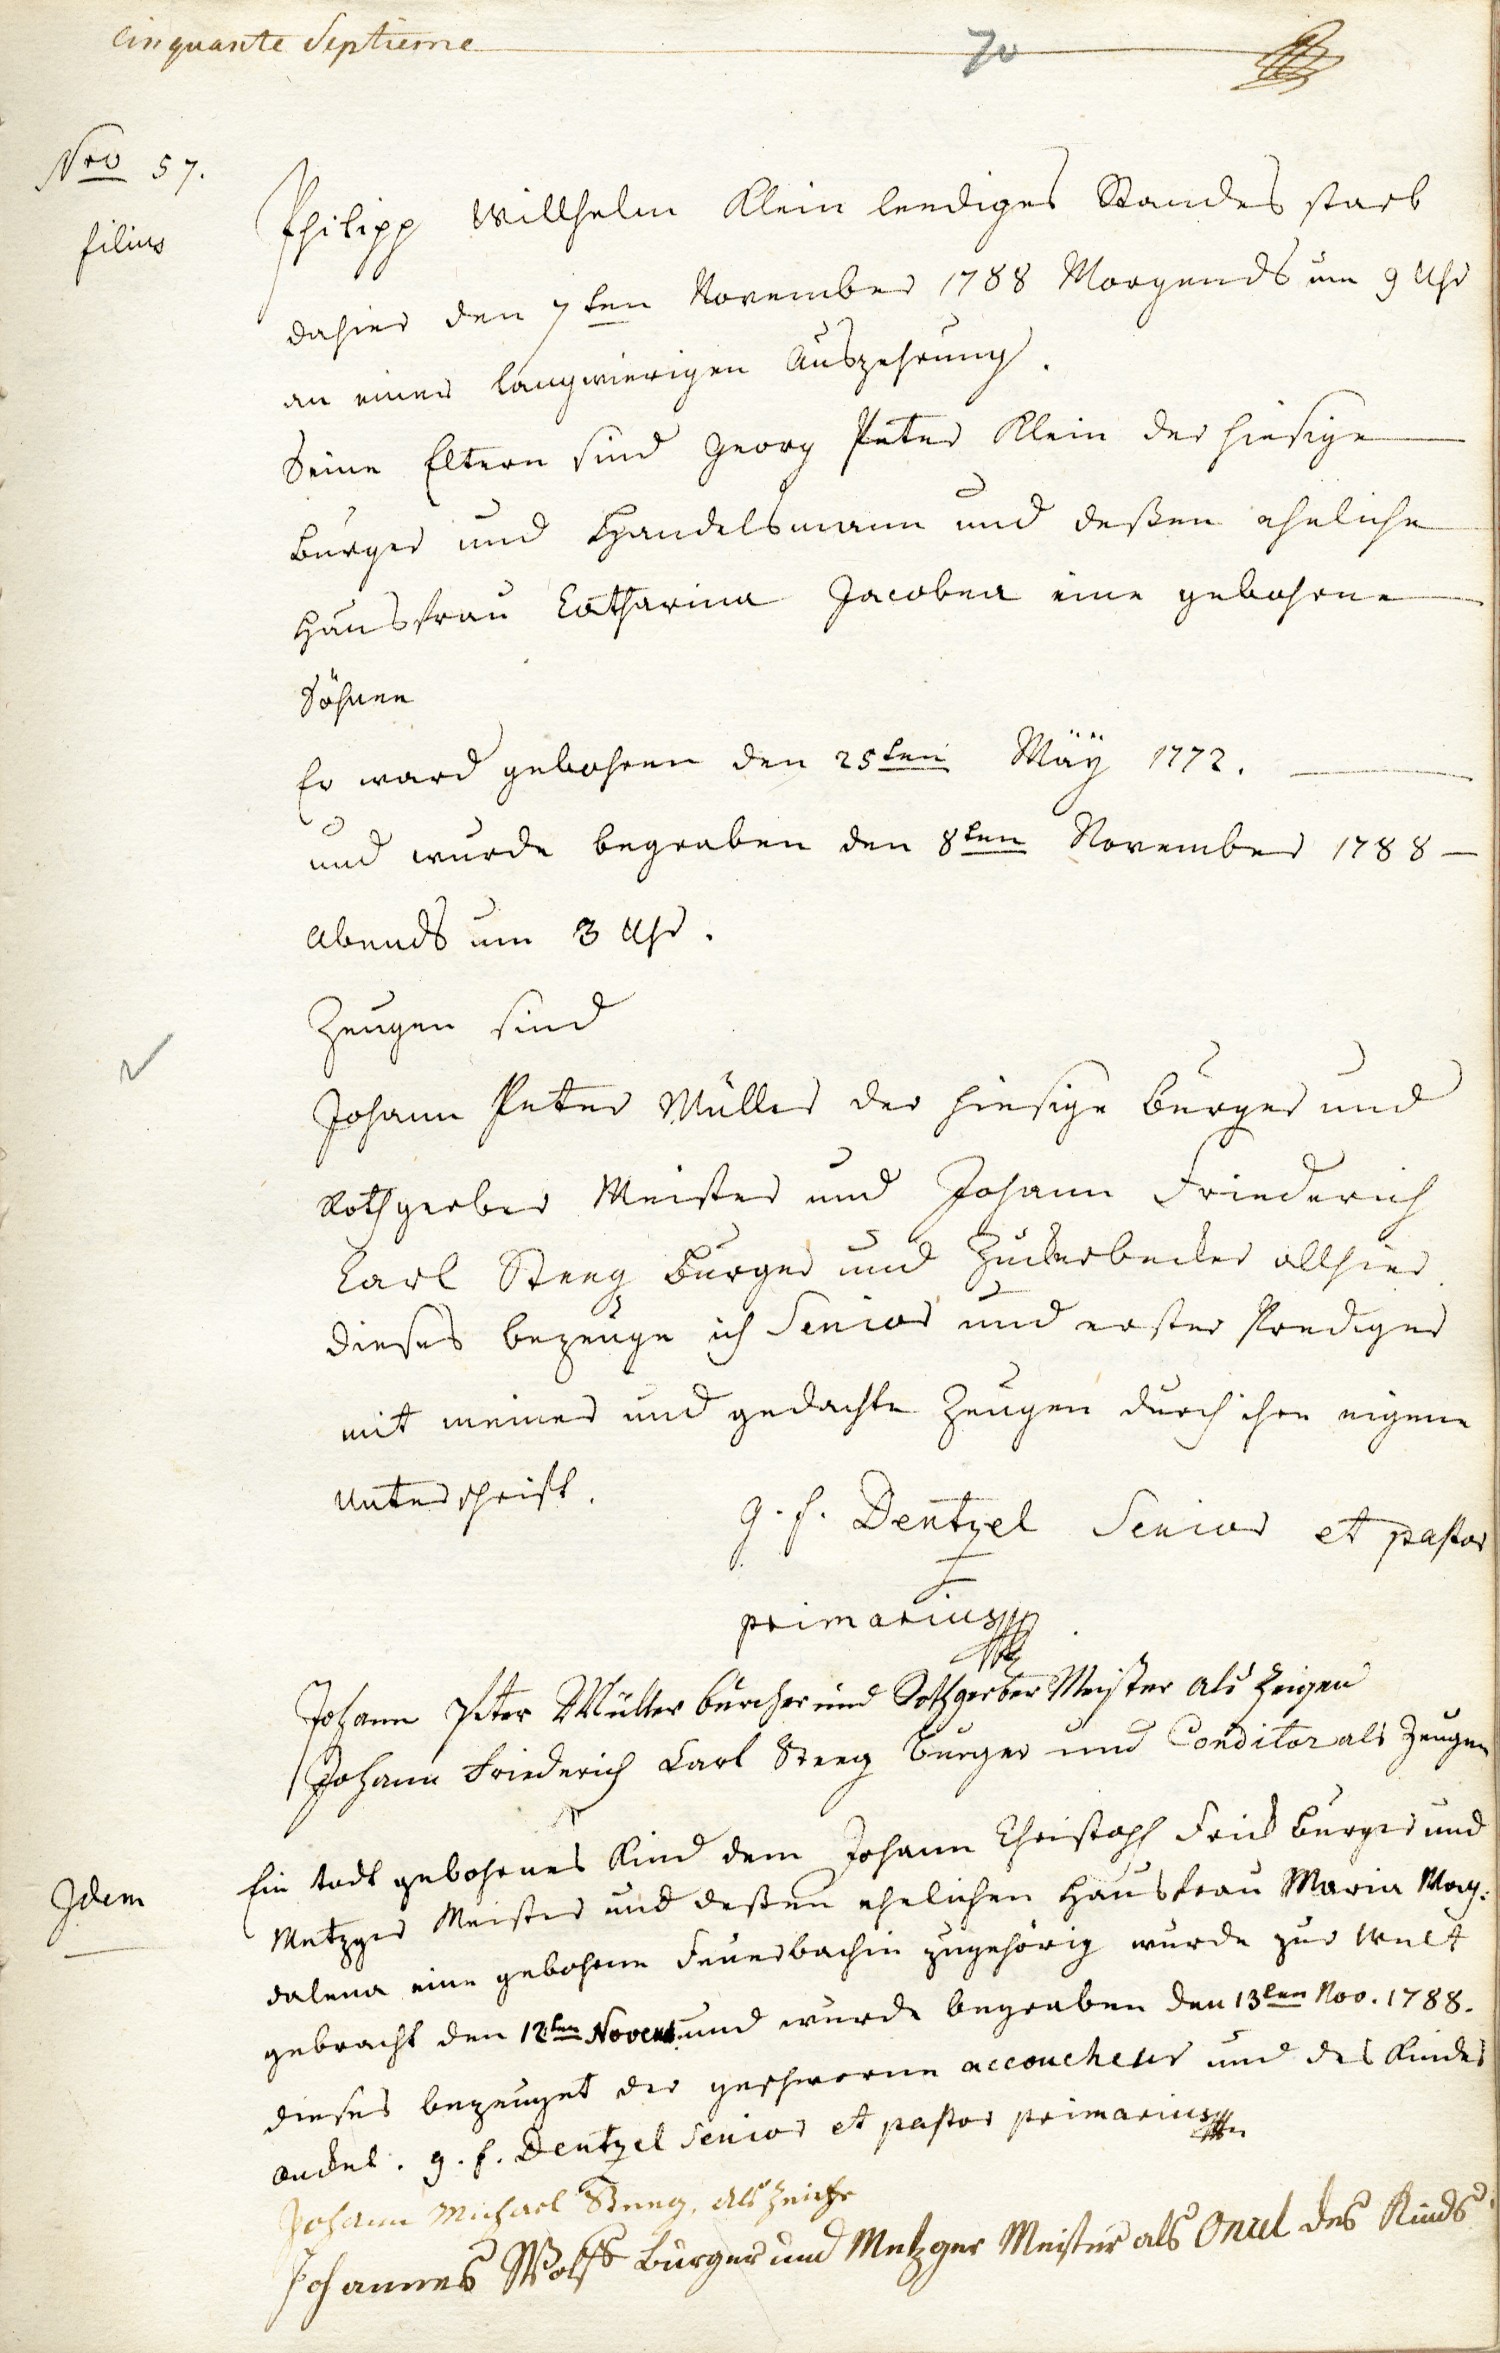 Cinquante Septieme
70
Nro 57.
filius
Philipp Willhelm Klein leediges Standes starb
dahier den 7ten November 1788 Morgends um 9 Uhr
an einer langwierigen Auszehrung.
Seine Eltern sind Georg Peter Klein der hiesige
Burger und Handelsmann und deßen eheliche
Hausfrau Catharina Jacobea eine gebohrne
Söhnee
Er ward gebohren den 25ten Mäÿ 1772.
und wurde begraben den 8ten November 1788
Abends um 3 Uhr.
Zeugen sind
Johann Peter Müller der hiesige Burger und
Rothgerber Meister und Johann Friederich
Carl Steeg Burger und Zuckerbecker allhier
dieses bezeuge ich Senior und erster Prediger
mit meiner und gedachte Zeugen durch ihre eigene
Unterschrift.
G. F. Dentzel Senior et pastor
primarius
Johann Peter Müller burcher und Rothgerber Meister als Zeigen
Johann Friederich Carl Steeg Burger und Conditor als Zeugen
Idem
Ein todt gebohrnes Kind dem Johann Christoph Frick Burger und
Metzger Meister und deßen ehelichen Hausfrau Maria Mag:
dalena eine gebohrne Feuerbachin zugehörig wurde zur Welt
gebracht den 12ten Novem. und wurde begraben den 13ten Nov. 1788.
dieses bezeuget der geschworne accoucheur und des Kindes
Onckel. G. F. Dentzel Senior et pastor primarius
Johann Michael Steeg, als Zeuge
Johannes Wolff Burger und Metzger Meister als Onckel des Kinds